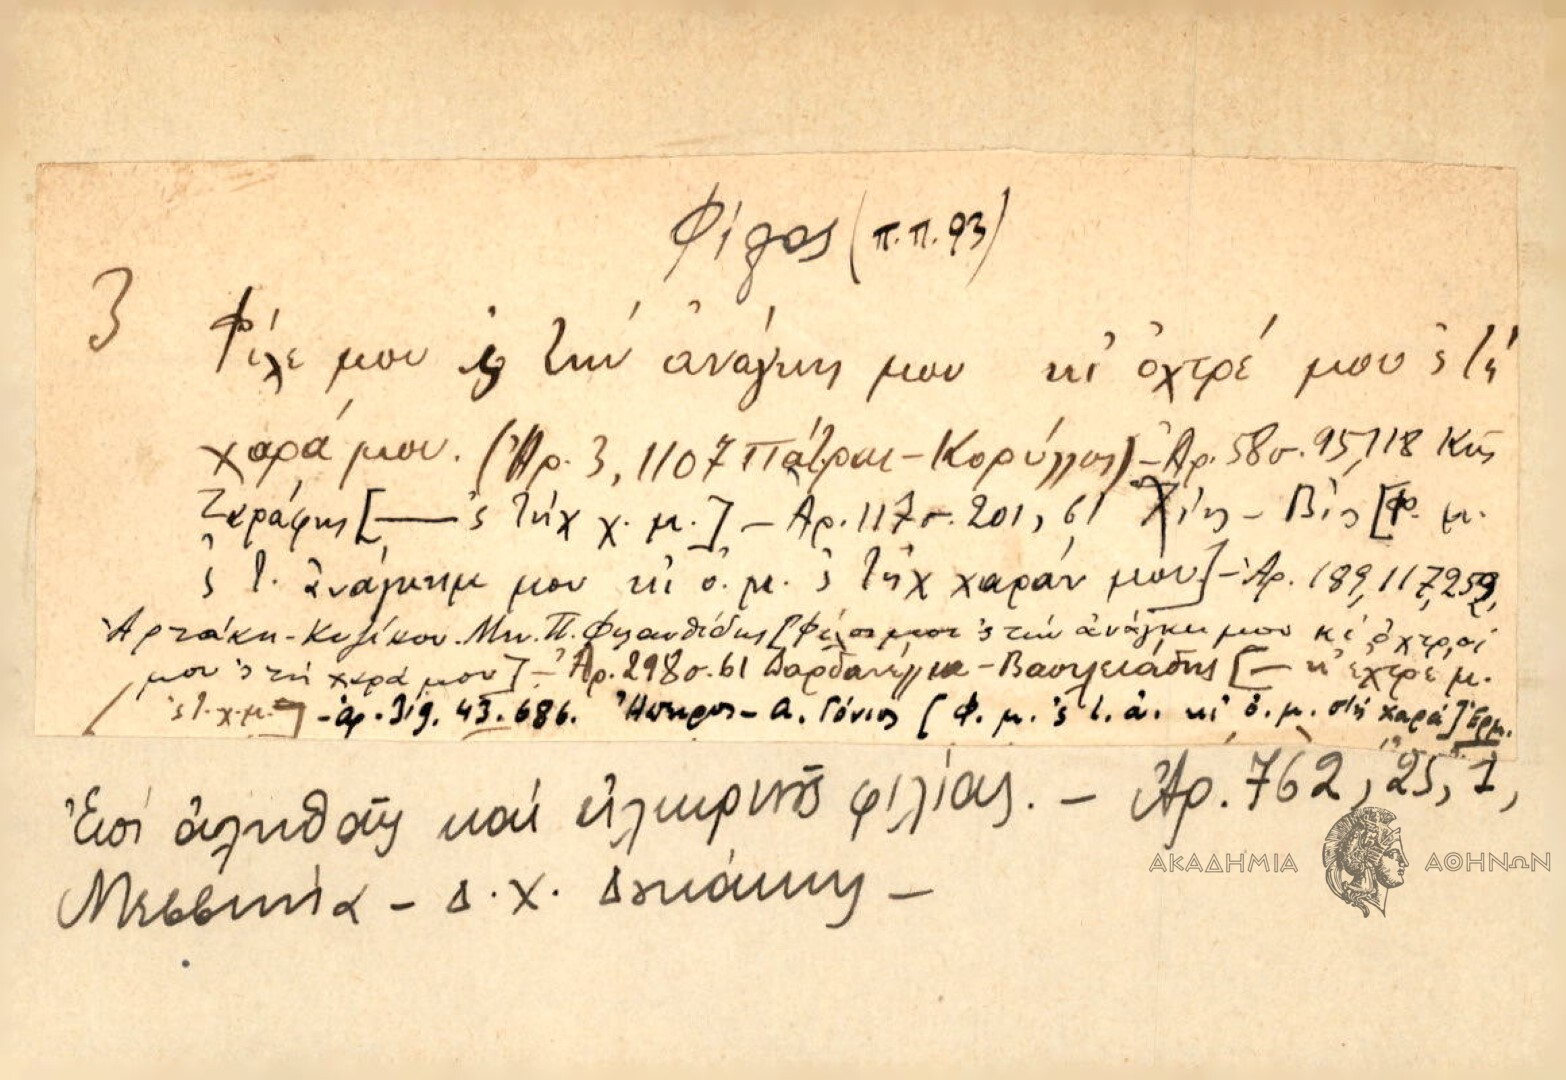 Φίλος (π.π. 93)
3 Φίλε μου 'ς τὴν ἀνάγκη μου κι' ὀχτρέ μου 'ς τὴ
χαρά μου. (Ἀρ. 3, 1107 Πάτραι - Κορύλλος) - Ἀρ. 58 σ. 95, 118
[— 'ς τὴχ χ. μ.] - Ἀρ. 117 σ. 201, 61 - Βίος [Φ. μ.
'ς τ. ἀνάγκημ μου κι' ὀ. μ. 'ς τὴχ χαράν μου] - Ἀρ. 189, 117, 259,
Ἀρτάκη - Κυζίκου. Μιλ. Π. Φιλανθίδης [Φίλοι μου 'ς τὴν ἀνάγκη μου κι' ὀχτροί
μου 'ς τὴ χαρά μου] - Ἀρ. 298 σ. 61 Δαρδανέλλια - Βασιλειάδης [— κι' ἐχτρέ μ.
'ς τ. χ. μ.] - ἀρ. 319. 43. 686. Ἤπειρος - Α. Γόνιος [Φ. μ. 'ς τ. ἀ. κι' ὀ. μ. στὴ χαρά] Ἑρμ.
Ἐπὶ ἀληθοῦς καὶ εἰλικρινοῦς φιλίας. - Ἀρ. 762, 25, 1,
Μεσσηνία - Δ. Χ. Δουκάκης -
ΑΚΑΔΗΜΙΑ ΑΘΗΝΩΝ